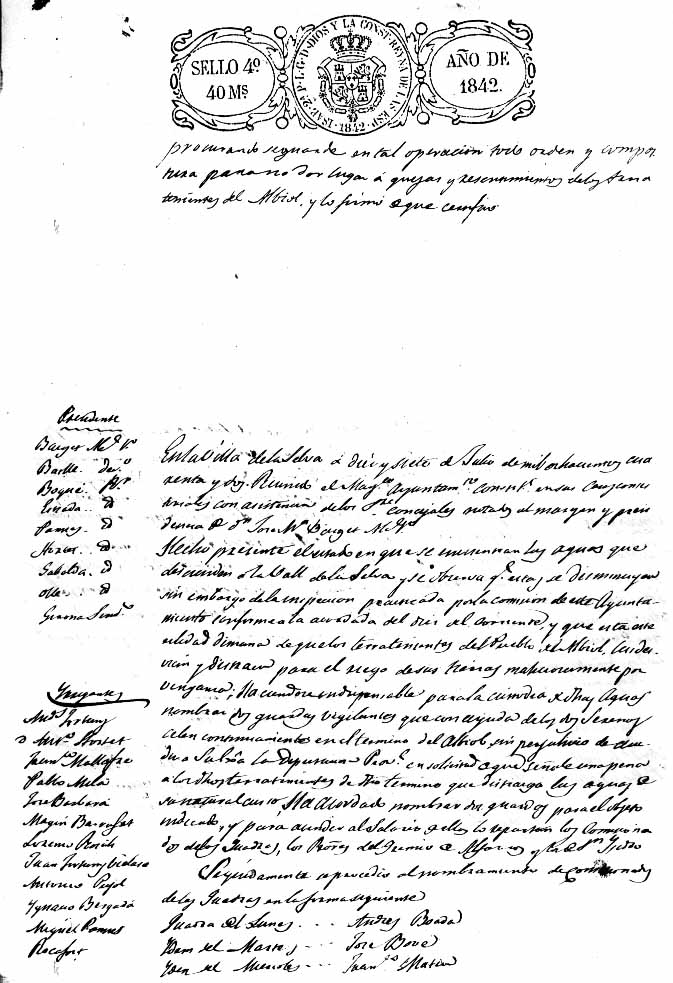 SELLO 4º
40 Ms
ISABEL 2ª P. L. G. D. DIOS Y LA CONST. REYNA DE LAS ESP.
1842
AÑO DE
1842.
procurando se guarde en tal operacion todo orden y compos
tura para no dar lugar á quejas y resentimientos de los terra
tenientes del Albiol, y lo firmó de que certifico
Presidente
Barget Me. 1º
Batlle de. 2º
Boqué
Estrada id
id
id
Gabaldá id
Olle id
Girona Sindº
En la Villa de la Selva á diez y siete de Julio de mil ochocientos cua
renta y dos. Reunido el Magco. Ayuntamto. Constl. en sus Casas consis
toriales con asistencia de los Sres. concejales notados al margen y presi
dencia de Dn. Jose Barget
Hecho presente el estado en que se encuentran las aguas que
descienden á la Vall de la Selva y se observa qe. estas se disminuyen
sin embargo de la inspeccion practicada por la comision de este Ayunta
miento conforme á lo acordado del diez del corriente, y que esta
dimana de que los terratenientes del Pueblo del Albiol, las des
vian y distraen para el riego de sus tierras
venganza; Ha cundo indispensable para la custodia de dhas. Aguas
nombrar dos guardas vigilantes que con ayuda de los dos Serenos
celen continuamente en el termino del Albiol, sin perjuicio de acu
dir á la Diputacion Provl. en solicitud de que señale una pena
á los dhos. terratenientes de dho. termino que distraiga las aguas de
su natural curso. Ha acordado nombrar dos guardas para el objeto
indicado, y para atender al Salario de ellos lo repartan los Comisiona
dos de las Quadras, los del Gremio de y de Sn. Isidro
Seguidamente se procedió al nombramiento de comisionados
de las Quadras en la forma siguiente
Quadra del Lunes - - - Andres Boada
Idem del Martes - - - Jose Bové
Iden del Miercoles - - - Juan Mateu
Andº. Fortuny
Anto.
Juan Mallafré
Pablo Mila
Jose
Magin Barrufet
Lorenzo
Juan Fortuny
Antonio Pujol
Ygnacio Bergadá
Miguel
Rocafort